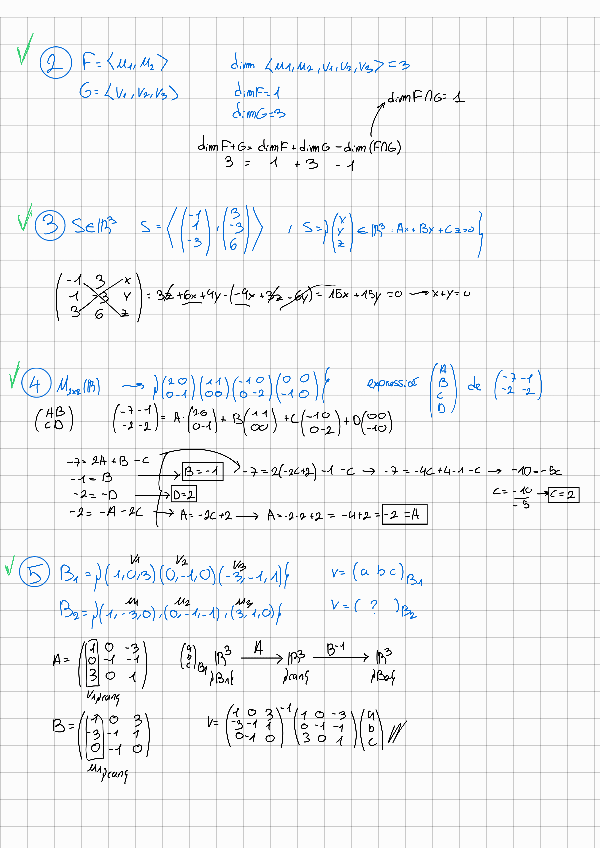 ✓ ② F = ⟨u₁, u₂⟩ dim ⟨u₁, u₂, v₁, v₂, v₃⟩ = 3
G = ⟨v₁, v₂, v₃⟩ dim F = 1
dim G = 3
dim F∩G = 1
dim F+G = dim F + dim G - dim (F∩G)
3 = 1 + 3 - 1
✓ ③ S∈ℝ³ S = ⟨(-1 1 -3), (3 -3 6)⟩ , S = {(x y z) ∈ ℝ³ : Ax + Bx + Cz = 0}
(-1 3 x
1 -3 y
3 6 z) = 3z + 6x + 9y - (-9x + 3z - 6y) = 15x + 15y = 0 → x + y = 0
✓ ④ M₂ₓ₂(ℝ) → {(2 0 0 -1) (1 1 0 0) (-1 0 0 -2) (0 0 -1 0)} expressió (A B C D) de (-7 -1 -2 -2)
(A B C D) (-7 -1 -2 -2) = A·(2 0 0 -1) + B(1 1 0 0) + C(-1 0 0 -2) + D(0 0 -1 0)
-7 = 2A + B - C
-1 = B → B = -1 -7 = 2(-2C+2) - 1 - C → -7 = -4C + 4 - 1 - C → -10 = -5C
-2 = -D → D = 2 C = -10/-5 → C = 2
-2 = -A - 2C → A = -2C + 2 → A = -2·2 + 2 = -4 + 2 = -2 = A
✓ ⑤ B₁ = {(1, 0, 3) (0, -1, 0) (-3, -1, 1)} v = (a b c)B₁
v₁ v₂ v₃
u₁ u₂ u₃
B₂ = {(1, -3, 0), (0, -1, -1), (3, 1, 0)} v = ( ? )B₂
A = (1 0 -3
0 -1 -1
3 0 1) (a b c)B₁ ℝ³ A → ℝ³ B⁻¹ → ℝ³
{B₁} {canq {B₂}
v₁{canq
B = (1 0 3
-3 -1 1
0 -1 0) v = (1 0 3 -3 -1 1 0 -1 0)⁻¹ (1 0 -3 0 -1 -1 3 0 1) (a b c)
u₁{canq